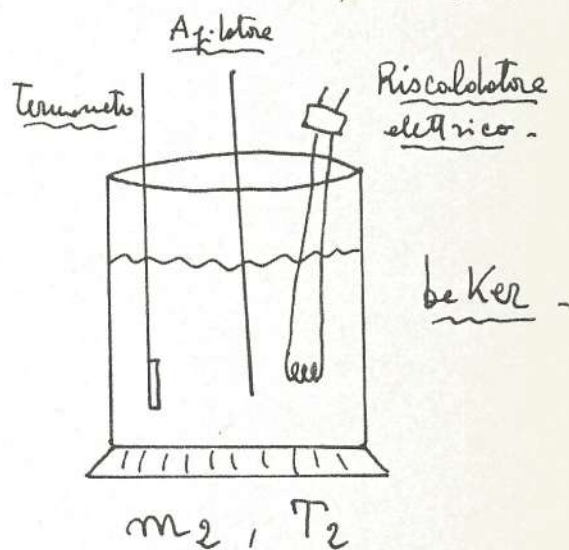 Agitatore
Termometro
Riscaldatore
elettrico.
beKer.
m₂, T₂